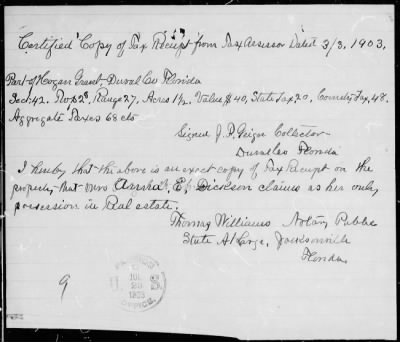 Certified Copy of Tax Receipt from Tax Assessor Dated 3/3, 1903.
Part of Hogan Grant - Duval Co Florida
Sec: 42. Twp 2S, Range 27, Acres 1½, Value $40, State Tax 20, County Tax, 48.
Aggregate Taxes 68 cts
Signed J. P. Geiger Collector
Duval Co Florida
I hereby that the above is an exact copy of Tax Receipt on the
property that Mrs E. Dickson claims as her only
possession in Real estate.
Thomas Williams Notary Public
State At Large, Jacksonville
Florida
U. S.
OFFICE
1903
9